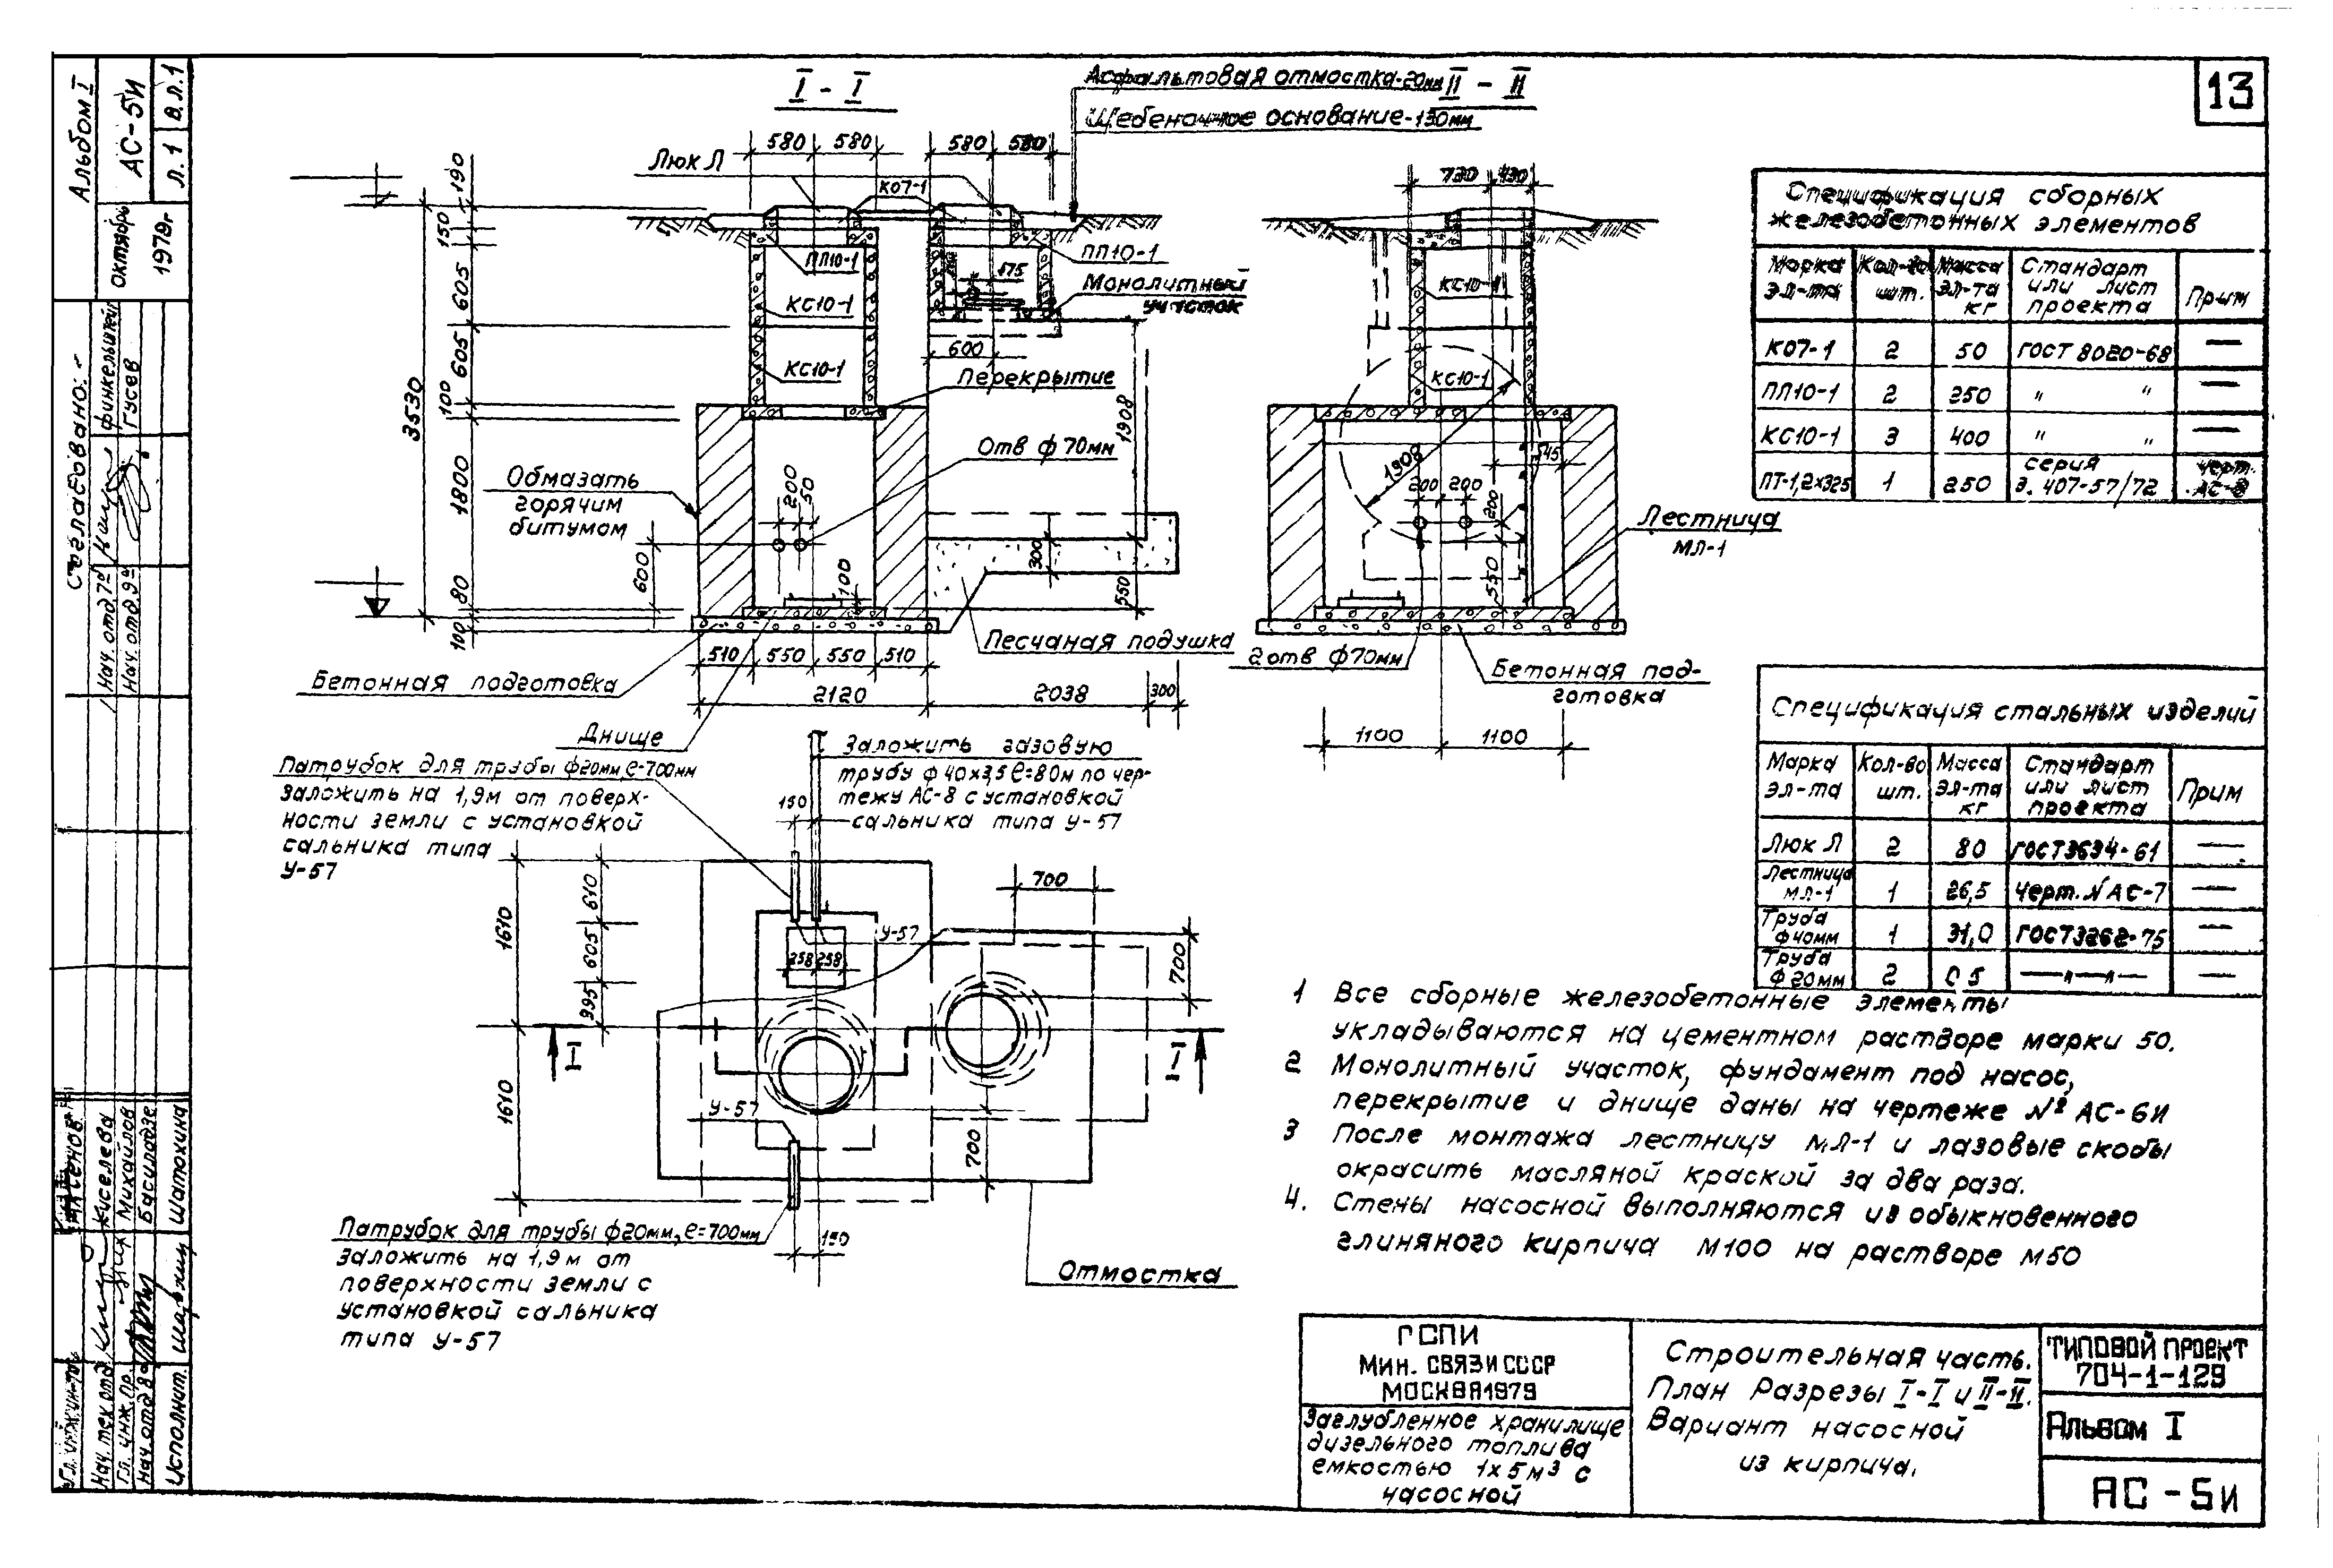 13
Альбом I
АС-5И
Л. 1
В.Л.1
Октябрь
1979г
Согласовано:
Гусев
Нач. отд 7
Нач. отд. 9
I - I
Асфальтовая отмостка-20мм
II - II
Щебеночное основание-130мм
580
580
580
580
Люк Л
КО7-1
ПП10-1
ПП10-1
175
Монолитный
участок
КС10-1
КС10-1
600
Перекрытие
Отв ф 70мм
Обмазать
горячим
битумом
190
150
605
605
100
3530
1800
80
100
200
50
600
100
1908
300
550
Песчаная подушка
510
550
550
510
2120
2038
300
Бетонная подготовка
Днище
730
430
КС10-1
КС10-1
1908
545
200
200
200
550
Лестница
МЛ-1
2 отв ф70мм
Бетонная под-
готовка
1100
1100
Патрубок для трубы ф20мм ℓ=700мм
заложить на 1,9м от поверх-
ности земли с установкой
сальника типа
У-57
Заложить газовую
трубу ф 40х3,5 ℓ=80м по чер-
тежу АС-8 с установкой
сальника типа У-57
150
1610
610
605
995
1610
У-57
258
258
700
700
I
I
У-57
700
150
Патрубок для трубы ф20мм, ℓ=700мм
заложить на 1,9 м от
поверхности земли с
установкой сальника
типа У-57
Отмостка
Спецификация сборных
железобетонных элементов
Марка эл-та
Кол-во шт.
Масса эл-та кг
Стандарт или лист проекта
Прим
КО7-1 2 50 ГОСТ 8020-68 —
ПП10-1 2 250 " " —
КС10-1 3 400 " " —
ПТ-1,2х325 1 250 серия 3.407-57/72 черт. АС-8
Спецификация стальных изделий
Марка эл-та
Кол-во шт.
Масса эл-та кг
Стандарт или лист проекта
Прим
Люк Л 2 80 ГОСТ3634-61 —
Лестница МЛ-1 1 26,5 Черт. N АС-7 —
Труба ф40мм 1 31,0 ГОСТ3262-75 —
Труба ф20мм 2 0 5 —"—"— —
1 Все сборные железобетонные элементы
укладываются на цементном растворе марки 50.
2 Монолитный участок, фундамент под насос,
перекрытие и днище даны на чертеже № АС-6И
3 После монтажа лестницу МЛ-1 и лазовые скобы
окрасить масляной краской за два раза.
4. Стены насосной выполняются из обыкновенного
глиняного кирпича М100 на растворе М50
Киселева
Михайлов
Василадзе
Шатохина
Нач. тех отд.
Гл. инж. пр.
Нач. отд 8
Исполнит.
ГСПИ
Мин. СВЯЗИ СССР
МОСКВА 1979
Заглубленное хранилище
дизельного топлива
емкостью 1х5м³ с
насосной
Строительная часть.
План Разрезы I-I и II-II.
Вариант насосной
из кирпича.
ТИПОВОЙ ПРОЕКТ
704-1-129
Альбом I
АС-5И